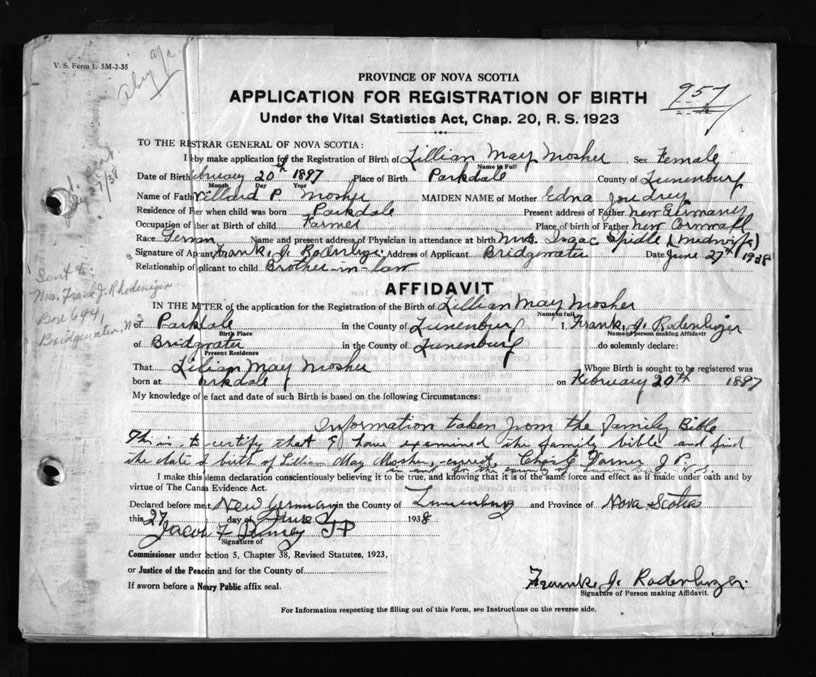 V. S. Form 1. 5M-2-35
957
PROVINCE OF NOVA SCOTIA
APPLICATION FOR REGISTRATION OF BIRTH
Under the Vital Statistics Act, Chap. 20, R. S. 1923
TO THE RISTRAR GENERAL OF NOVA SCOTIA:
I by make application for the Registration of Birth of Lillian May Mosher Sex Female
Name in Full
Date of Birth February 20th 1897 Place of Birth Parkdale County of Lunenburg
Month Day Year
Name of Fath Willard P. Mosher MAIDEN NAME of Mother Edna Joudrey
Residence of Fer when child was born Parkdale Present address of Father New Germany
Occupation of her at Birth of child Farmer Place of birth of her New Cornwall
Race German Name and present address of Physician in attendance at birth Mrs. Isaac Spidle (Midwife)
Signature of Apcant Frank. J. Rodenhizer Address of Applicant Bridgewater Date June 27th 1938
Relationship of plicant to child Brother-in-law
Sent to:
Mrs. Frank J. Rhodenizer
Box 694,
Bridgewater, N
AFFIDAVIT
IN THE MTER of the application for the Registration of the Birth of Lillian May Mosher
Name in full
of Parkdale in the County of Lunenburg I, Frank. J. Rodenhizer
Birth Place Name of person making Affidavit
of Bridgwater in the County of Lunenburg do solemnly declare:
Present Residence
That Lillian May Mosher Whose Birth is sought to be registered was
born at arkdale on February 20th 1897
My knowledge of e fact and date of such Birth is based on the following Circumstances:
Information taken from the family Bible
This is to certify that I have examined the family bible and find
the date of birth of Lillian May Mosher, correct, J. P.
in and for the county of N. S.
I make this lemn declaration conscientiously believing it to be true, and knowing that it is of the same force and effect as if made under oath and by
virtue of The Canaa Evidence Act.
Declared before me at New Germany in the County of Lunenburg and Province of Nova Scotia
this 27 day of June 1938
Jacob F JP
Signature of
Commissioner under ection 5, Chapter 38, Revised Statutes, 1923,
or Justice of the Peace in and for the County of
If sworn before a Noary Public affix seal.
Frank. J. Rodenhizer.
Signature of Person making Affidavit.
For Information respecting the filling out of this Form, see Instructions on the reverse side.